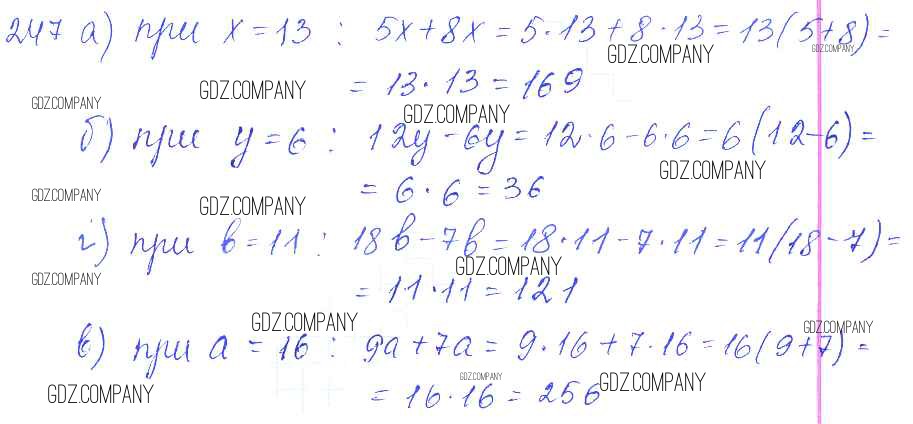 247 а) при x = 13 : 5x + 8x = 5 · 13 + 8 · 13 = 13 ( 5 + 8 ) =
GDZ.COMPANY GDZ.COMPANY
= 13 · 13 = 169
GDZ.COMPANY GDZ.COMPANY GDZ.COMPANY
б) при y = 6 : 12y - 6y = 12 · 6 - 6 · 6 = 6 ( 12 - 6 ) =
GDZ.COMPANY
= 6 · 6 = 36
GDZ.COMPANY GDZ.COMPANY
г) при b = 11 : 18b - 7b = 18 · 11 - 7 · 11 = 11 ( 18 - 7 ) =
GDZ.COMPANY GDZ.COMPANY
= 11 · 11 = 121
GDZ.COMPANY GDZ.COMPANY
в) при a = 16 : 9a + 7a = 9 · 16 + 7 · 16 = 16 ( 9 + 7 ) =
GDZ.COMPANY GDZ.COMPANY GDZ.COMPANY
= 16 · 16 = 256